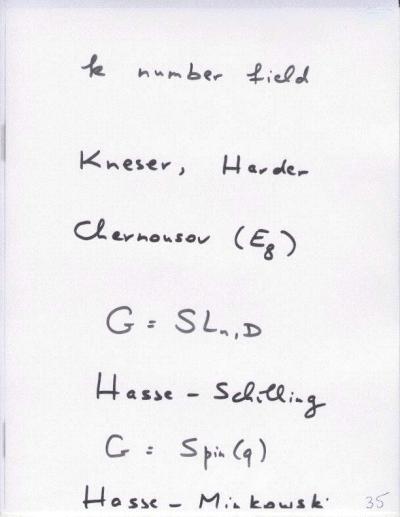 k number field
Kneser, Harder
Chernousov (E₈)
G = SLₙ,D
Hasse - Schilling
G = Spin(q)
Hasse - Minkowski
35